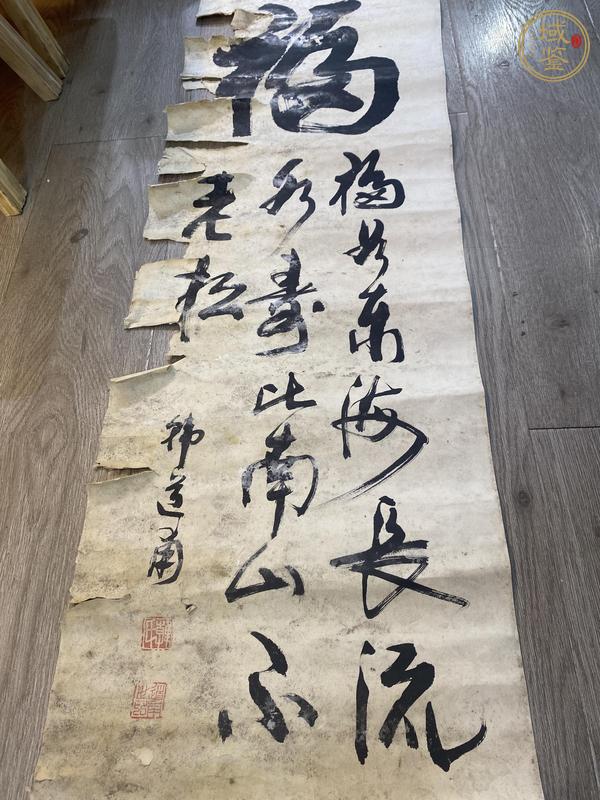 福
福如东海長流
水寿比南山不
老松
韩道甫
域鉴